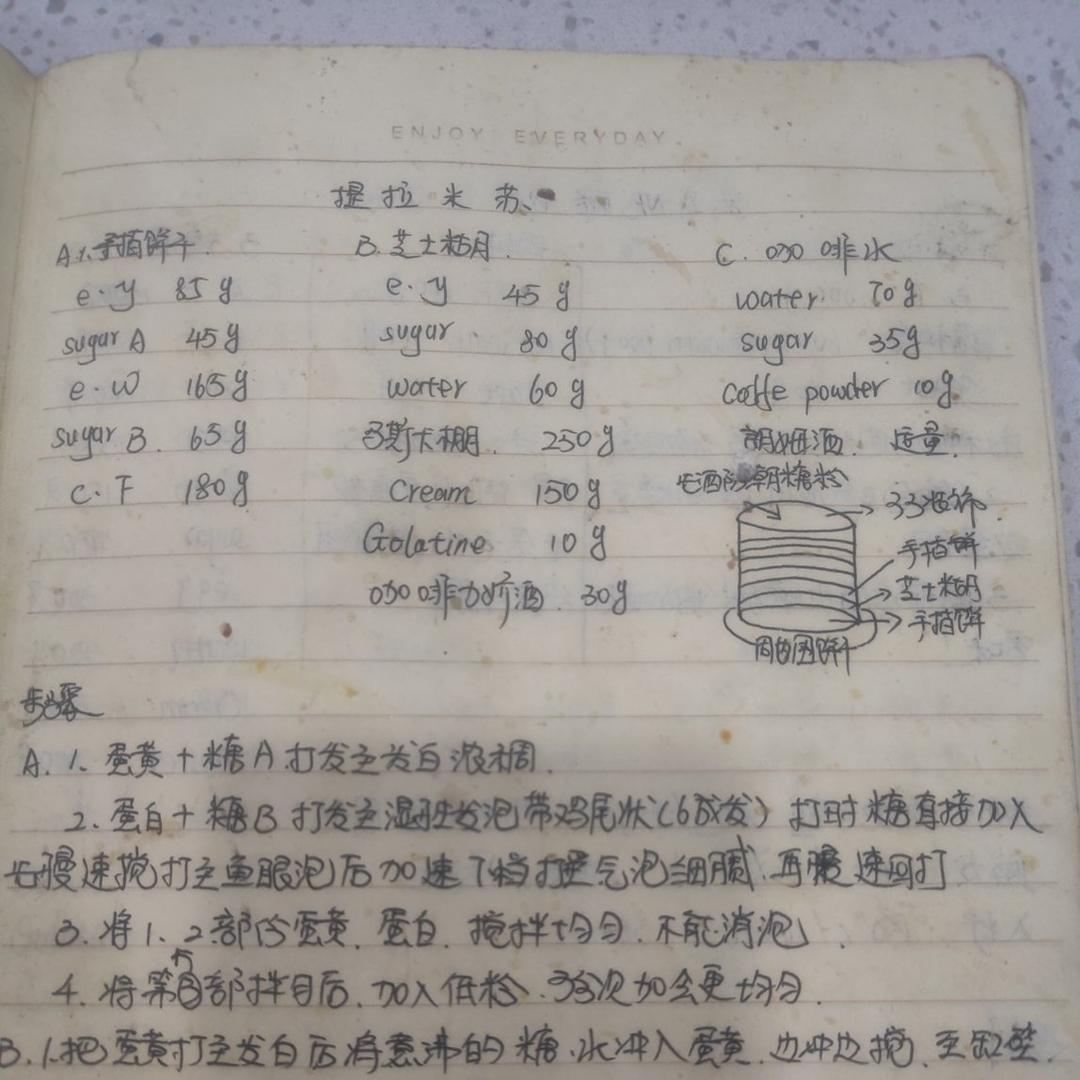 ENJOY EVERYDAY
提拉米苏
A、手指饼干. B.芝士糊. C. 咖啡水
e.y 85g e.y 45g water 70g
sugar A 45g sugar 80g sugar 35g
e.W 165g water 60g caffe powder 10g
sugar B. 65g 马斯卡棚. 250g 朗姆酒. 适量.
C.F 180g Cream 150g
Golatine 10g
咖啡力娇酒. 30g
防潮糖粉
手指饼
芝士糊
手指饼
周围饼干
步骤
A.1、蛋黄+糖A打发至发白浓稠.
2.蛋白+糖B打发至湿性发泡带鸡尾状(6成发) 打时糖直接加入
慢速搅打至鱼眼泡后加速 档打至气泡细腻.再慢速回打
3.将1、2部份蛋黄.蛋白.搅拌均匀.不能消泡.
4.将第3部拌匀后.加入低粉.分次加会更均匀.
B.1.把蛋黄打至发白后将煮沸的糖.水冲入蛋黄.边冲边搅.至缸壁.